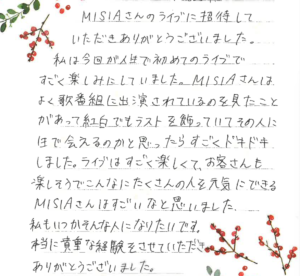 MISIAさんのライブに招待して
いただきありがとうございました。
私は今回が人生で初めてのライブで
すごく楽しみにしていました。MISIAさんは
よく歌番組に出演されているのを見たこと
があって紅白でもラストを飾っていてその人に
日で会えるのかと思ったらすごくドキドキ
しました。ライブはすごく楽しくて、お客さんも
楽しそうでこんなにたくさんの人を元気にできる
MISIAさんはすごいなと思いました。
私もいつかそんな人になりたいです。
本当に貴重な経験をさせていただき
ありがとうございました。